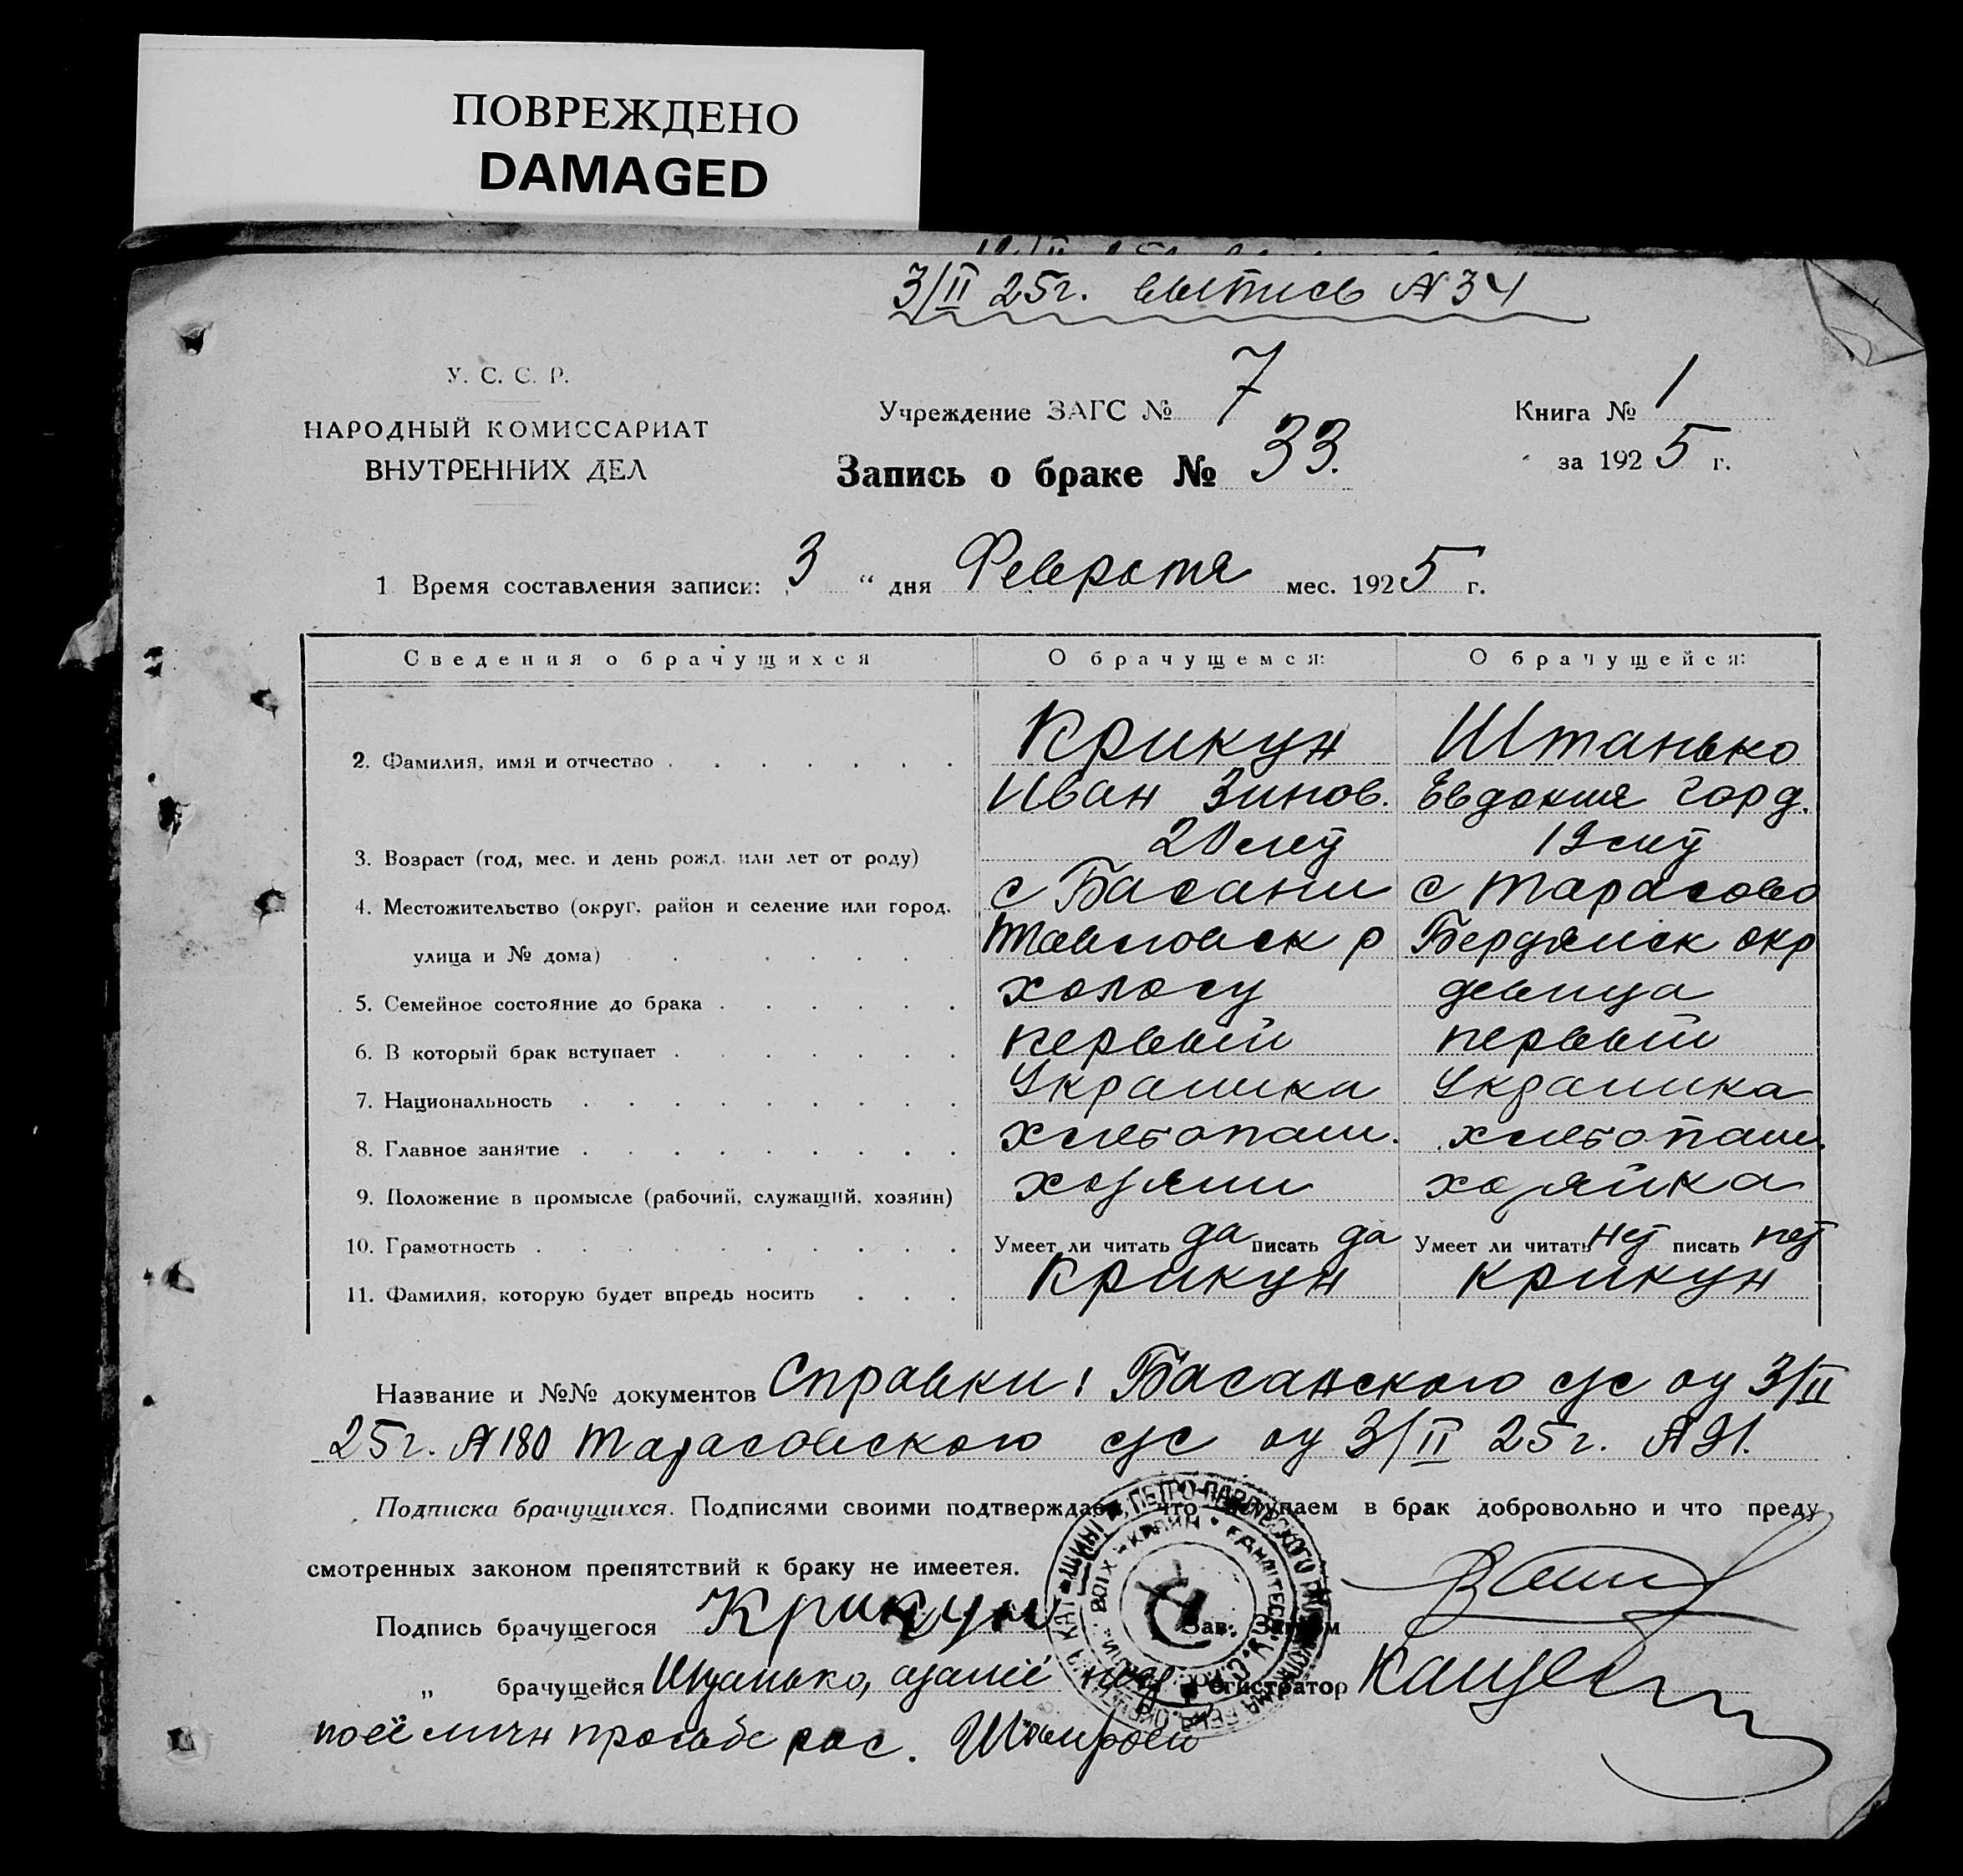 ПОВРЕЖДЕНО
DAMAGED
3/II 25г. выпись № 34
У. С. С. Р.
НАРОДНЫЙ КОМИССАРИАТ
ВНУТРЕННИХ ДЕЛ
Учреждение ЗАГС № 7
Книга № 1
Запись о браке № 33.
за 1925 г.
1 Время составления записи: 3 " дня Февраля мес. 1925 г.
Сведения о брачущихся О брачущемся: О брачущейся:
2. Фамилия, имя и отчество Крикун Штанько
Иван Зинов. Евдокия Горд.
3. Возраст (год, мес. и день рожд. или лет от роду) 20 лет 19 лет
4. Местожительство (округ, район и селение или город, с Басани с Тарасово
улица и № дома) р Бердянск окр
5. Семейное состояние до брака холост девица
6. В который брак вступает первый первый
7. Национальность Украинка
8. Главное занятие хлебопаш. хлебопаш.
9. Положение в промысле (рабочий, служащий, хозяин) хозяин хозяйка
10. Грамотность Умеет ли читать да писать да Умеет ли читать нет писать нет
11. Фамилия, которую будет впредь носить Крикун Крикун
Название и №№ документов Справки: Басанского с/с от 3/II
25г. № 180 Тарасовского с/с от 3/II 25г. № 91.
Подписка брачущихся. Подписями своими подтверждаем, что вступаем в брак добровольно и что преду
смотренных законом препятствий к браку не имеется.
Подпись брачущегося Крикун Зав. Загсом
„ брачущейся Штанько, Регистратор
по её личн просьбе рас.